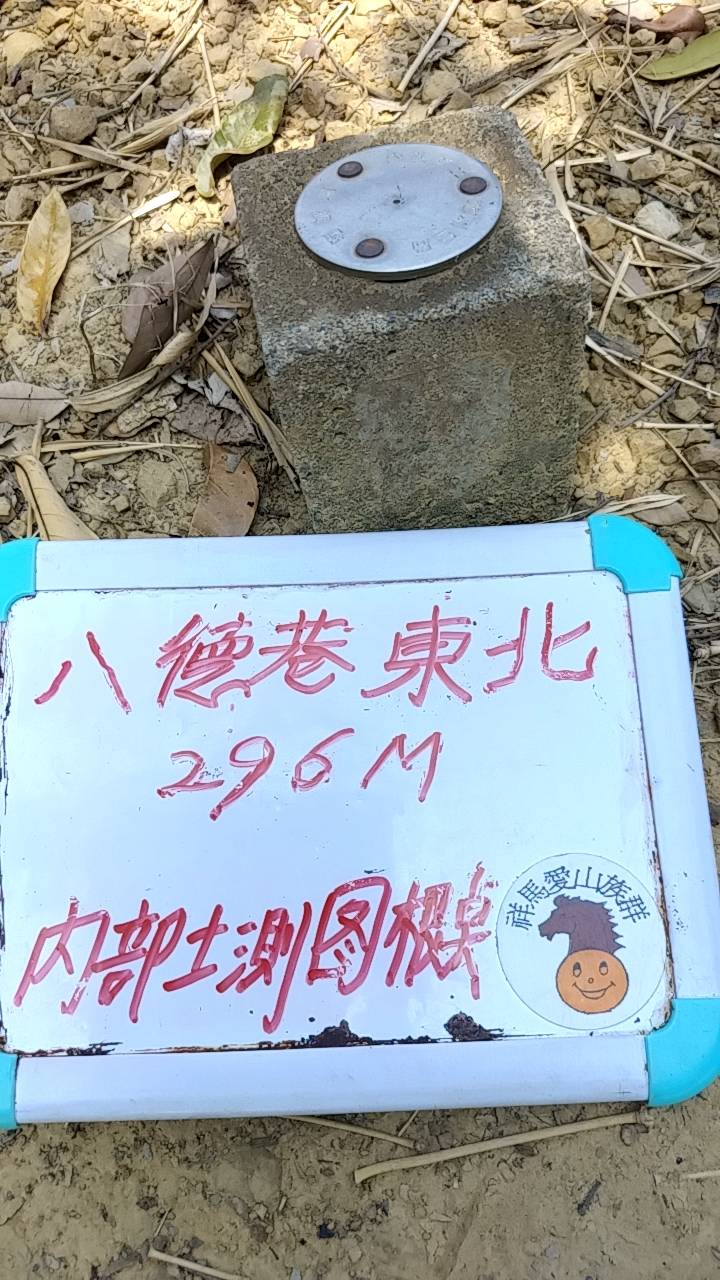 八德巷東北
296M
内部土測図根桌
祥馬愛山族群